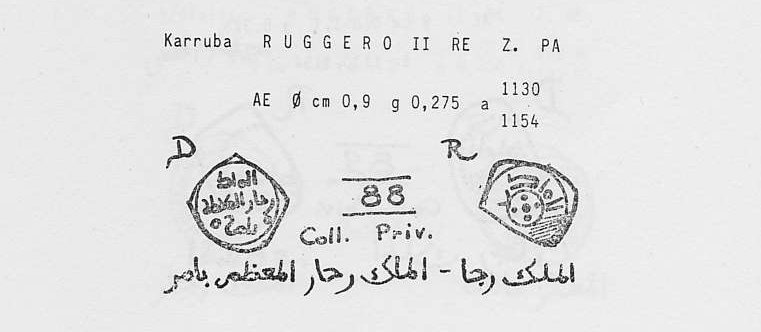 Karruba RUGGERO II RE Z. PA
AE Ø cm 0,9 g 0,275 a 1130
1154
D
R
88
Coll. Priv.
الملك رجا - الملك رجار المعظم بامر